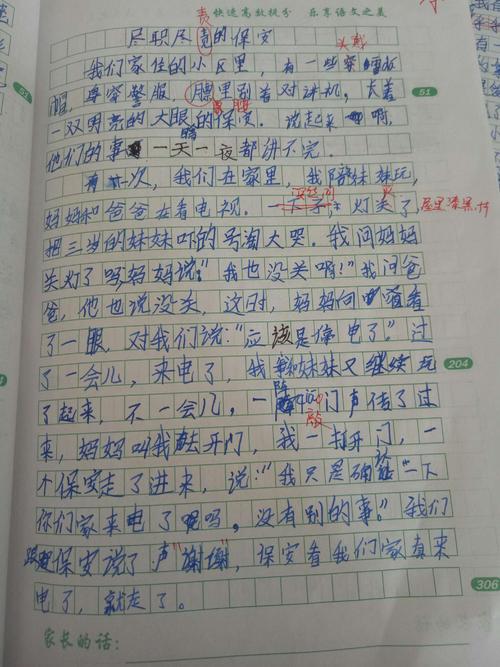 快速高效提分 乐享语文之美
责
尽职尽竟的保安
头戴
我们家住的小区里，有一些穿
帽，身穿警服，腰里别着对讲机，长着
51
51
一双明亮的大眼睛的保安。说起来啊，
他们的事一天一夜都讲不完。
有一次，我们在家里，我陪妹妹玩，
妈妈和爸爸在看电视。一下子灯关了，
屋里漆黑一片
把三岁的妹妹吓的号淘大哭。我问妈妈
关灯了吗，妈妈说："我也没关啊！"我问爸
爸，他也说没关，这时，妈妈向窗看
了一眼，对我们说："应该是停电了"。过
了一会儿，来电了，我和妹妹又继续玩
204
了起来，不一会儿，一阵敲门声传了过
来，妈妈叫我去开门，我一打开门，一
个保安走了进来，说："我只是确认一下
你们家来电了吗，没有别的事。"我们
跟保安说了声"谢谢"，保安看我们家真来
电了，就走了。
306
家长的话：